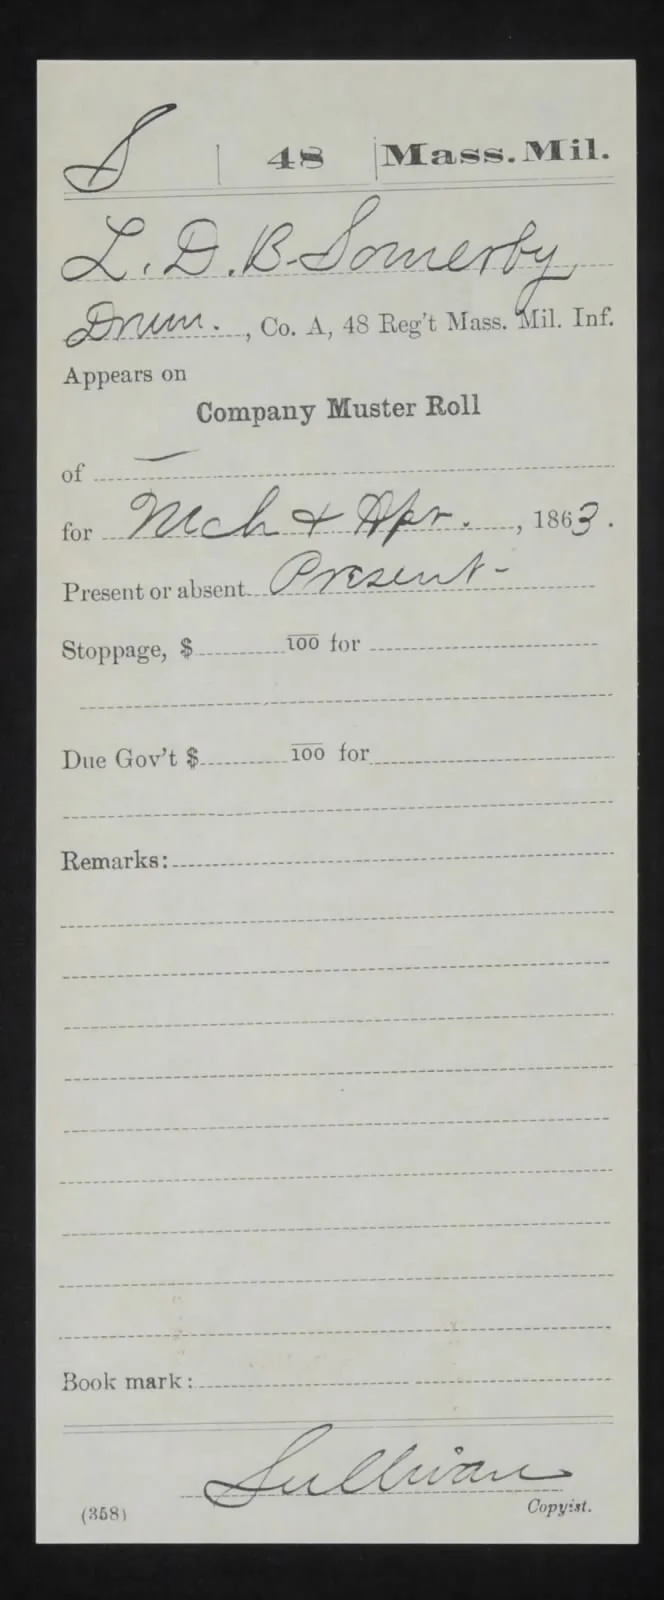 S | 48 | Mass. Mil.
L. D. B. Somerby
Drum., Co. A, 48 Reg't Mass. Mil. Inf.
Appears on
Company Muster Roll
of —
for Mch & Apr., 1863.
Present or absent Present-
Stoppage, $ 100 for
Due Gov't $ 100 for
Remarks:
Book mark:
Sullivan
(358) Copyist.